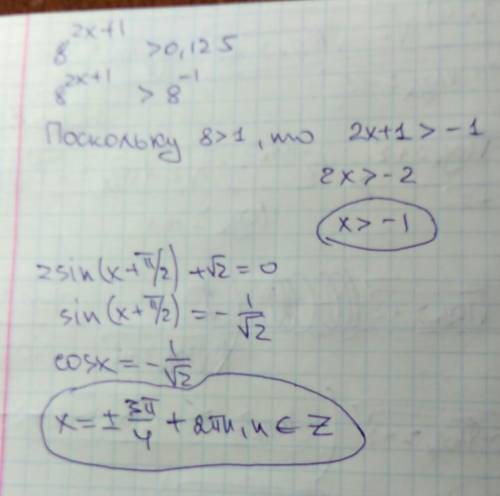 8^{2x+1} > 0,125
8^{2x+1} > 8^{-1}
Поскольку 8>1, то 2x+1 > -1
2x > -2
x > -1
2sin(x+π/2) + √2 = 0
sin(x+π/2) = - 1/√2
cosx = - 1/√2
x = ± 3π/4 + 2πn, n ∈ Z